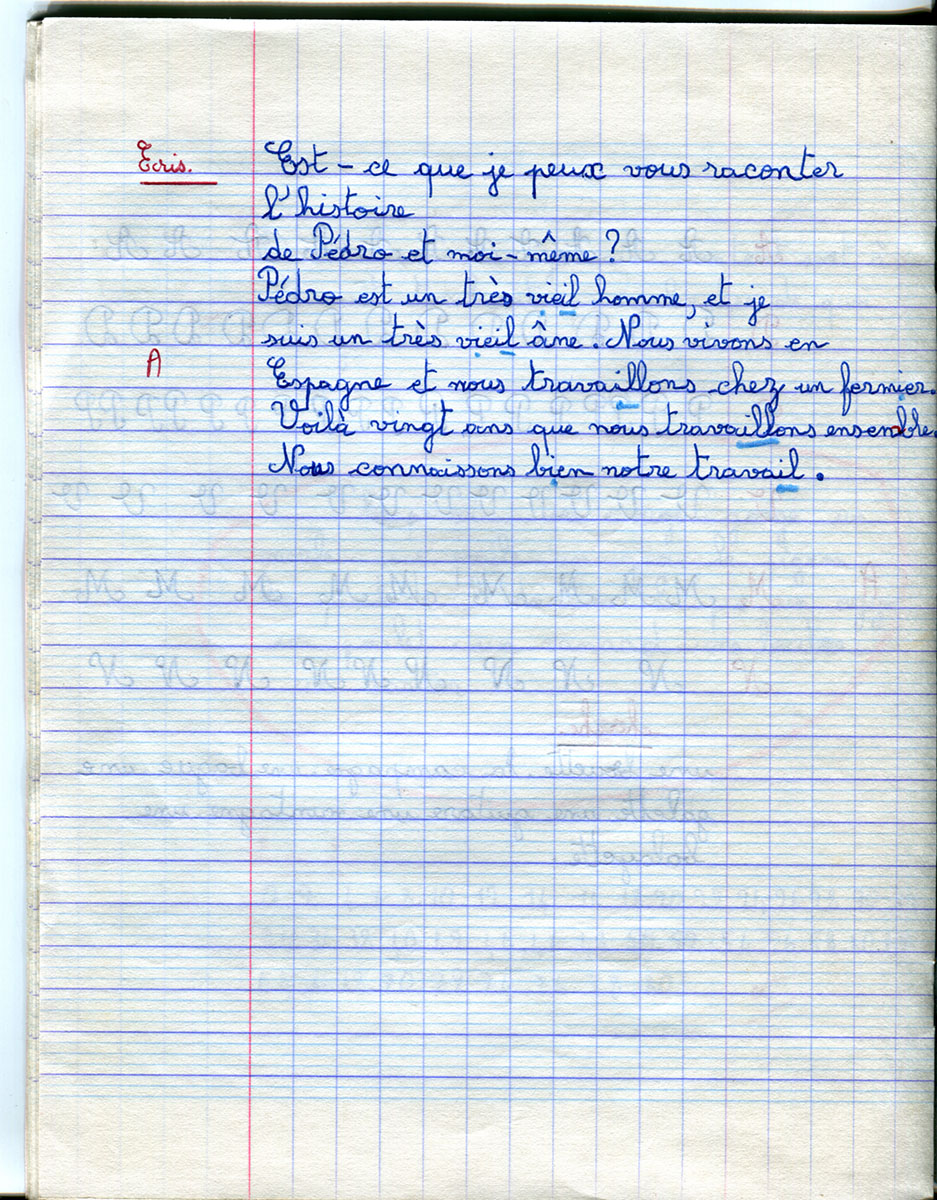 Ecris. Est-ce que je peux vous raconter
l'histoire
de Pédro et moi-même ?
Pédro est un très vieil homme, et je
suis un très vieil âne. Nous vivons en
A Espagne et nous travaillons chez un fermier.
Voilà vingt ans que nous travaillons ensemble.
Nous connaissons bien notre travail.